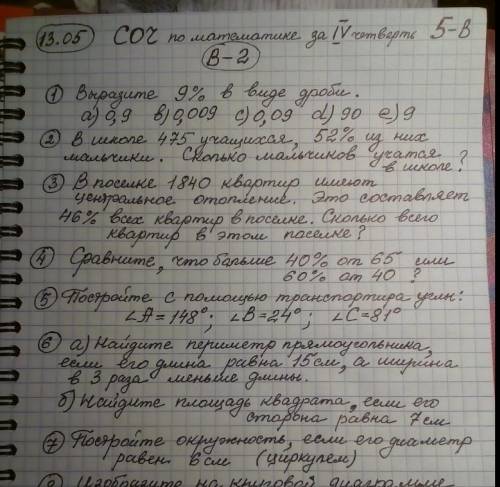 13.05 СОЧ по математике за IV четверть 5-В
В-2
1 Выразите 9% в виде дроби.
a) 0,9 b) 0,009 c) 0,09 d) 90 e) 9
2 В школе 475 учащихся, 52% из них
мальчики. Сколько мальчиков учатся
в школе?
3 В поселке 1840 квартир имеют
центральное отопление. Это составляет
46% всех квартир в поселке. Сколько всего
квартир в этом поселке?
4 Сравните, что больше 40% от 65 или
60% от 40?
5 Постройте с помощью транспортира углы:
∠A = 148°; ∠B = 24°; ∠C = 81°
6 а) Найдите периметр прямоугольника,
если его длина равна 15 см, а ширина
в 3 раза меньше длины.
б) Найдите площадь квадрата, если его
сторона равна 7 см
7 Постройте окружность, если его диаметр
равен 6 см (циркулем)
8 Изобразите на круговой диаграмме